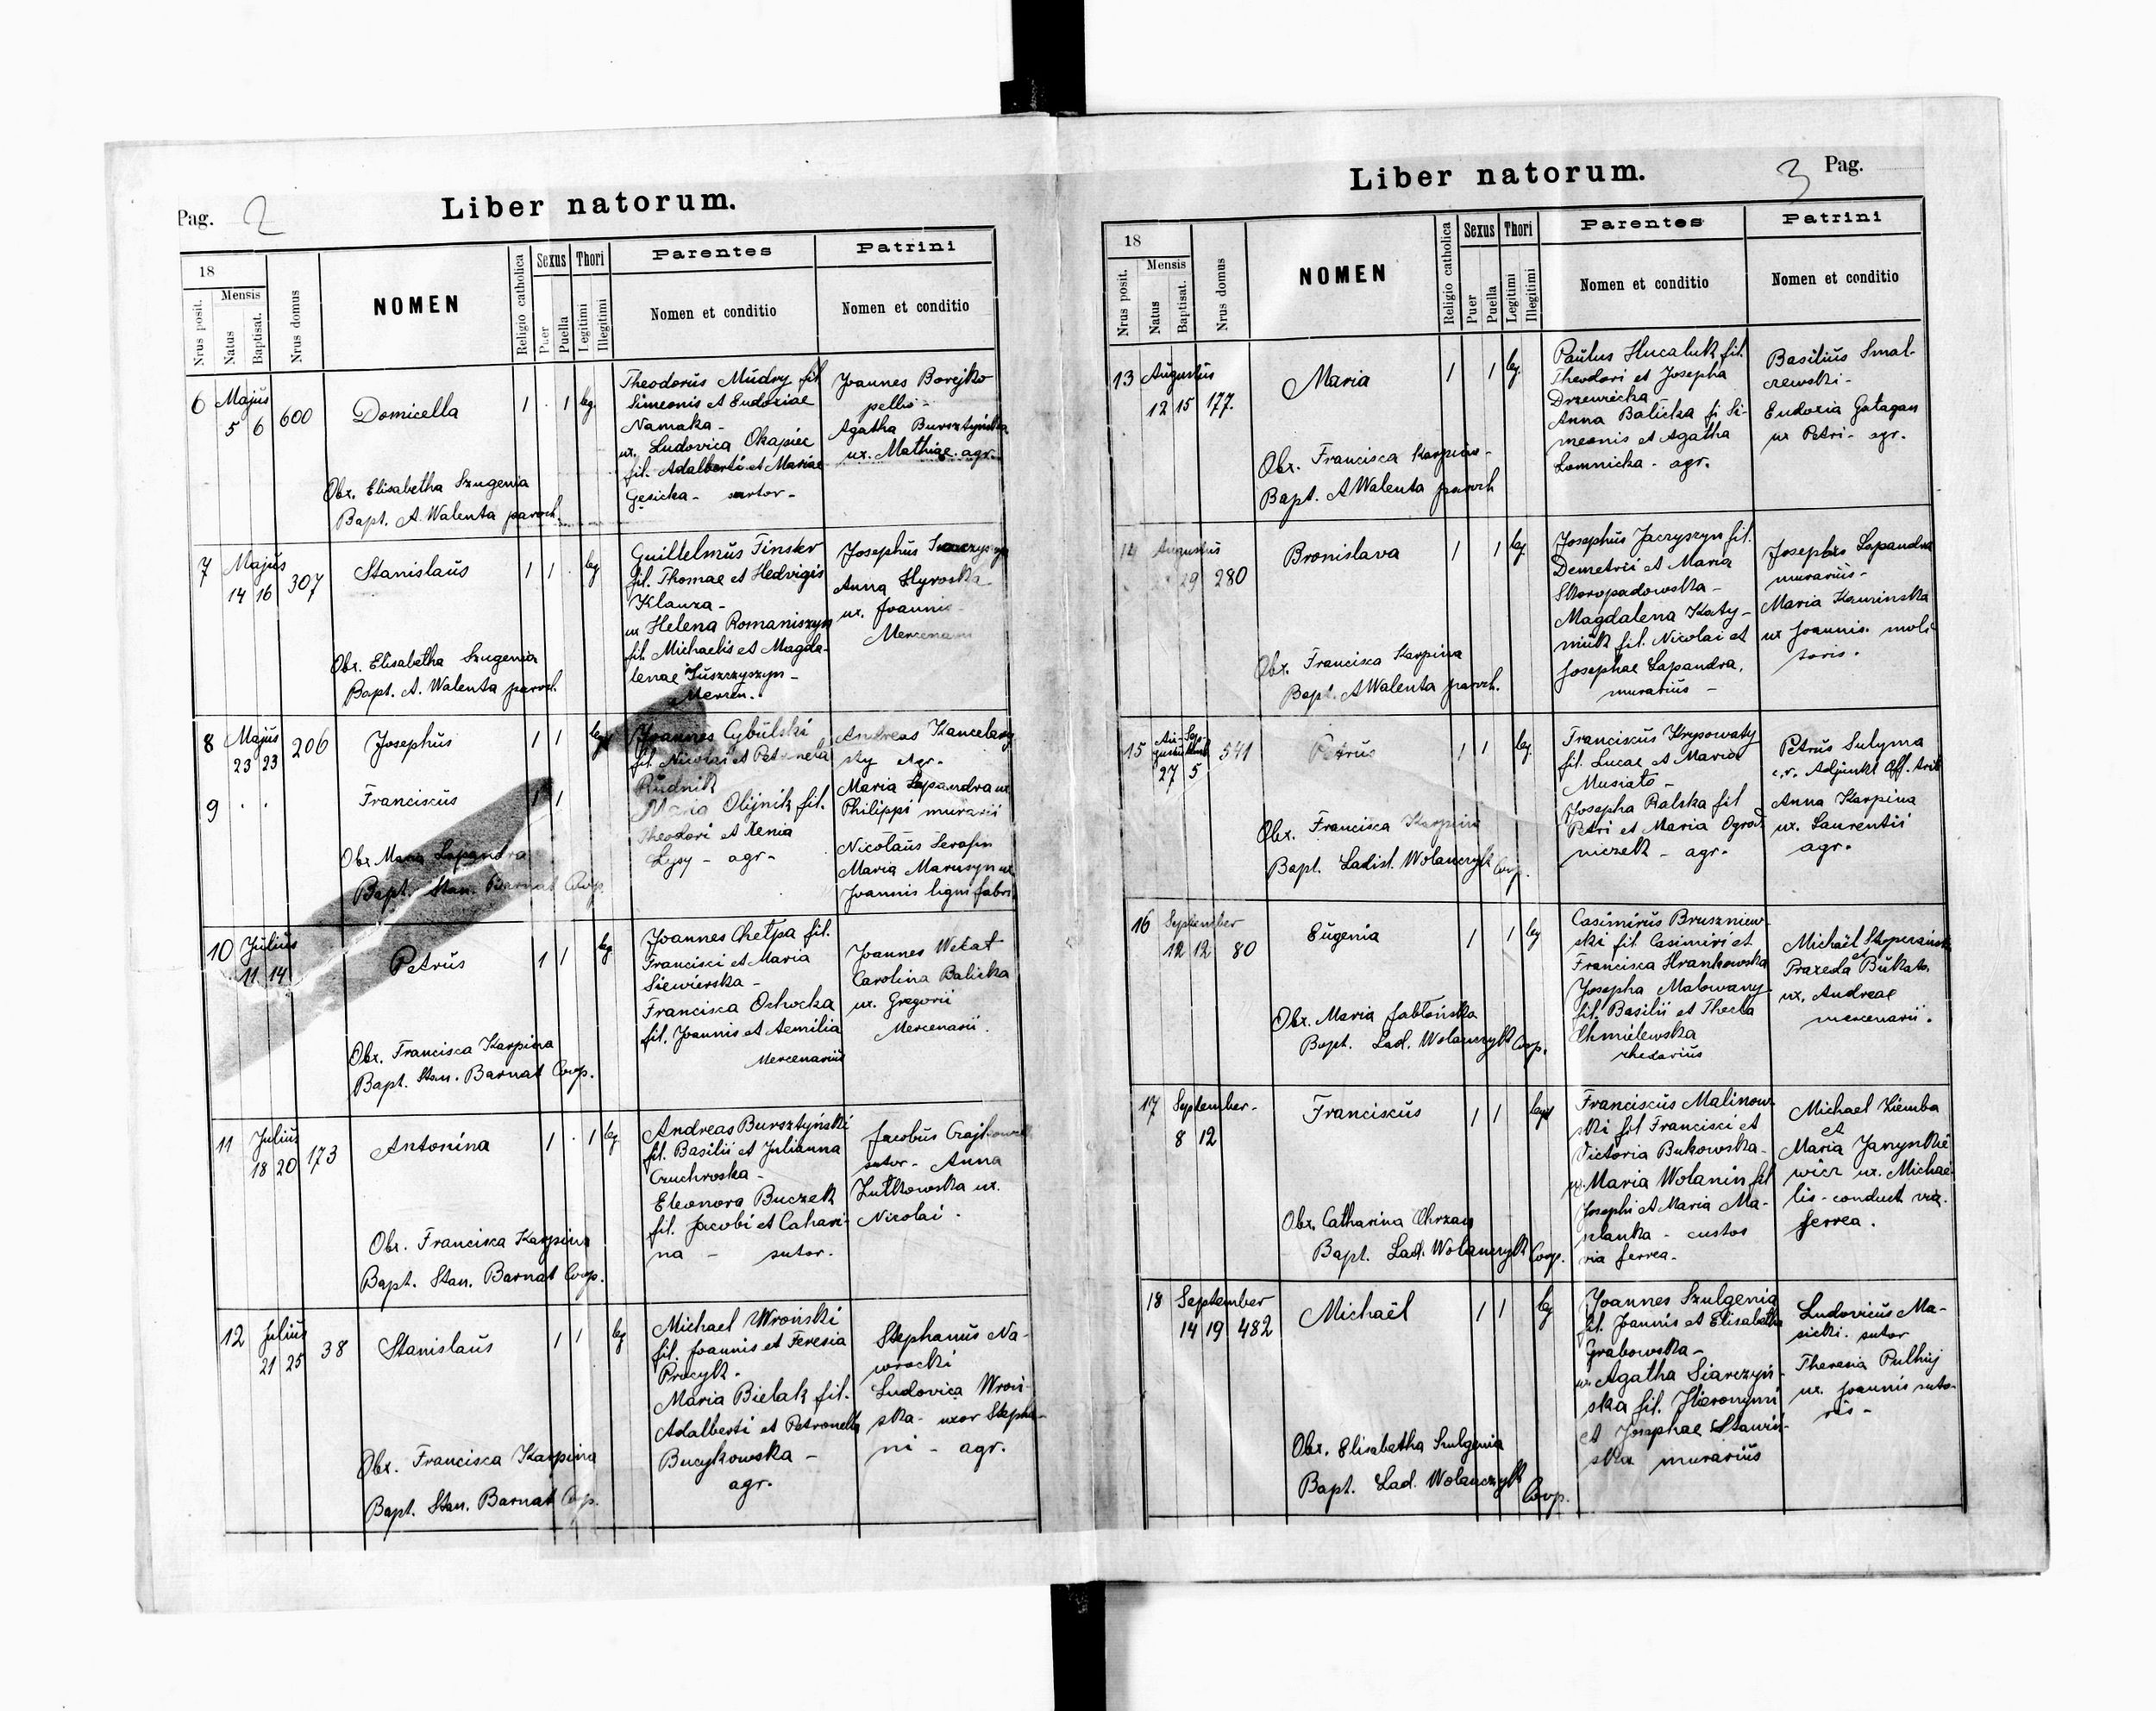 Pag. 2
Liber natorum.
18
Mensis
Nrus posit.
Natus
Baptisat.
Nrus domus
NOMEN
Religio catholica
Sexus
Puer
Puella
Thori
Legitimi
Illegitimi
Parentes
Nomen et conditio
Patrini
Nomen et conditio
6 Majus
5 6 600
Domicella
1 . 1 leg.
Obx. Elisabetha Szugenia
Bapt. A. Walenta paroch.
Theodorus Mudry fil.
Simeonis et Eudoxiae
Namaka -
ux. Ludovica Okapiec
fil. Adalberti et Mariae
Gęsicka - sartor -
Joannes Borejko
pellio -
Agatha Bursztyńska
ux. Mathiae. agr.
7 Majus
14 16 307
Stanislaus
1 1 . leg
Obx. Elisabetha Szugenia
Bapt. A. Walenta paroch.
Guillelmus Finster
fil. Thomae et Hedvigis
Klauza -
ux Helena Romaniszyn
fil. Michaelis et Magda-
lenae Juszczyszyn -
Mercen.
Josephus
Anna Hyroska
ux. Joannis
Mercenarii
8 Majus
23 23 206
Josephus
1 1 leg
9 . .
Franciscus
1 1
Obx Maria Lapandra
Bapt. Stan. Barnat Coop.
Joannes Cybulski
fil. Nicolai et Petronela
Rudnik
Maria Olijnik fil.
Theodori et Xenia
Lysy - agr -
Andreas Kancelary
sky agr.
Maria Lapandra ux.
Philippi murarii
Nicolaus Serafin
Maria Marusyn ux.
Joannis ligni fabri.
10 Julius
11 14
Petrus
1 1 leg
Obx. Francisca Karpina
Bapt. Stan. Barnat Coop.
Joannes Chełpa fil.
Francisci et Maria
Siewierska -
Francisca Ochocka
fil. Joannis et Aemilia
Mercenarius
Joannes Wekat
Carolina Balicka
ux. Gregorii
Mercenarii.
11 Julius
18 20 173
Antonina
1 . 1 leg
Obx. Francisca Karpina
Bapt. Stan. Barnat Coop.
Andreas Bursztyński
fil. Basilii et Julianna
Czuchroska -
Eleonora Buczek
fil. Jacobi et Cahari-
na - sutor.
Jacobus
sutor - Anna
Lutkowska ux.
Nicolai.
12 Julius
21 25 38
Stanislaus
1 1 leg
Obx. Francisca Karpina
Bapt. Stan. Barnat Coop.
Michael Wroński
fil. Joannis et Teresia
Procyk -
Maria Bielak fil.
Adalberti et Petronella
Bucykowska -
agr.
Stephanus Na-
wrocki
Ludovica Wroń-
ska - uxor Stepha-
ni - agr.
Liber natorum.
3 Pag.
18
Mensis
Nrus posit.
Natus
Baptisat.
Nrus domus
NOMEN
Religio catholica
Sexus
Puer
Puella
Thori
Legitimi
Illegitimi
Parentes
Nomen et conditio
Patrini
Nomen et conditio
13 Augustus
12 15 177.
Maria
1 1 leg.
Obx. Francisca Karpina -
Bapt. A Walenta paroch
Paulus Hucaluk fil.
Theodori et Josepha
Drzewicka -
Anna Balicka fi Si-
meonis et Agatha
Lomnicka - agr.
Basilius Smal-
czewski -
Eudoxia Gatagan
ux Petri - agr.
14 Augustus
29 280
Bronislava
1 1 leg.
Obx. Francisca Karpina
Bapt. A Walenta paroch.
Josephus Jaczyszyn fil.
Demetrii et Maria
Skoropadowska -
Magdalena Katy-
niuk fil. Nicolai et
Josephae Lapandra.
murarius -
Josephus Lapandra
murarius -
Maria Kaminska
ux Joannis. moli-
toris.
15 Au- Sep-
27 5 541
Petrus
1 1 leg.
Obx. Francisca Karpina
Bapt. Ladisl. Wolanczyk Coop.
Franciscus Krysowaty
fil. Lucae et Maria
Musiało -
Josepha Ralska fil
Petri et Maria Ogrod-
niczek - agr.
Petrus Sulyma
c.r. Adjunkt Off. trib
Anna Karpina
ux. Laurentii
agr.
16 September
12 12 80
Eugenia
1 1 leg
Obx. Maria Jabłońska
Bapt. Lad. Wolanczyk Coop.
Casimirus Bruszniew-
ski fil Casimiri et
Francisca Hrankowska
Josepha Malowany
fil. Basilii et Thecla
Chmielewska
rhedarius
Michaël
et
Praxeda Bukato
ux. Andreae
mercenarii.
17 September -
8 12
Franciscus
1 1 leg
Obx. Catharina Chrzan
Bapt. Lad. Wolanczyk Coop.
Franciscus Malinow-
ski fil Francisci et
Victoria Bukowska -
ux. Maria Wolanin fil
Josephi et Maria Ma-
slanka - custos
via ferrea -
Michael Ziemba
et
Maria Janynkie-
wicz ux. Michae-
lis - conduct via
ferrea.
18 September
14 19 482
Michaël
1 1 leg
Obx. Elisabetha Szulgenia
Bapt. Lad. Wolanczyk Coop.
Joannes Szulgenia
fil. Joannis et Elisabetha
Grabowska -
ux. Agatha Siarczyń-
ska fil. Hieronymi
et Josephae
ska murarius
Ludovicus Ma-
sicki. sutor
Theresia Pulhuj
ux. Joannis suto-
ris -